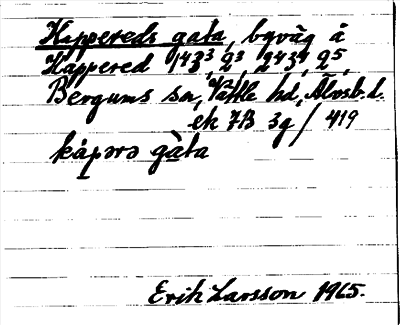 Käppereds gata, bgväg å
Käppered 1⁴3³, 2³, 2⁴3⁴, 2⁵,
Bergums sn, Vättle hd, Älvsb. l.
ek 7B 3g / 419
kàpərə gàta
Erik Larsson 1965.